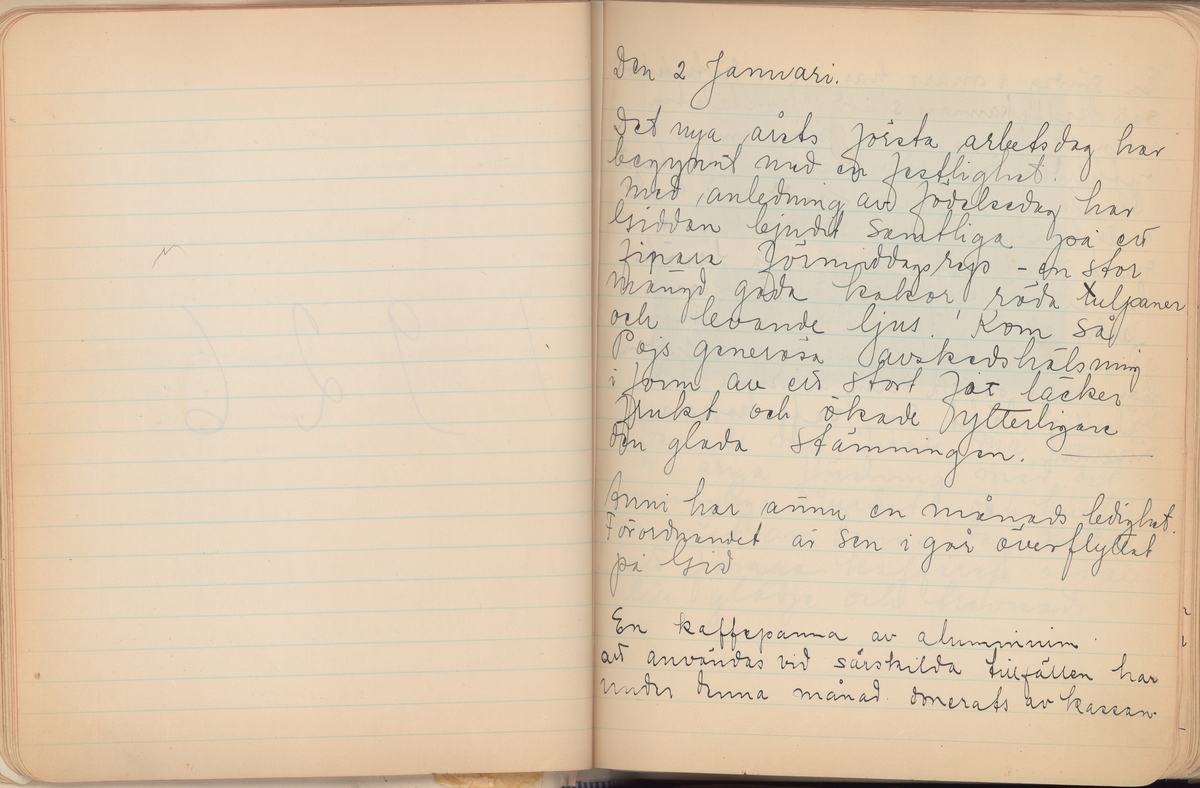 Den 2 Januari.
Det nya årets första arbetsdag har
begynnt med en festlighet!
Med anledning av födelsedag har
Giddan bjudit samtliga på ett
fipara förmiddagsrep - en stor
mängd goda kakor, röda tulpaner
och levande ljus! Kom så
Pojs generösa avskedshälsning
i form av ett stort fat läcker
frukt och ökade ytterligare
den glada stämningen.
Anni har ännu en månads ledighet.
Förordnandet är sen igår överflyttat
på Gid
En kaffepanna av aluminium
att användas vid särskilda tillfällen har
under denna månad donerats av kassan.